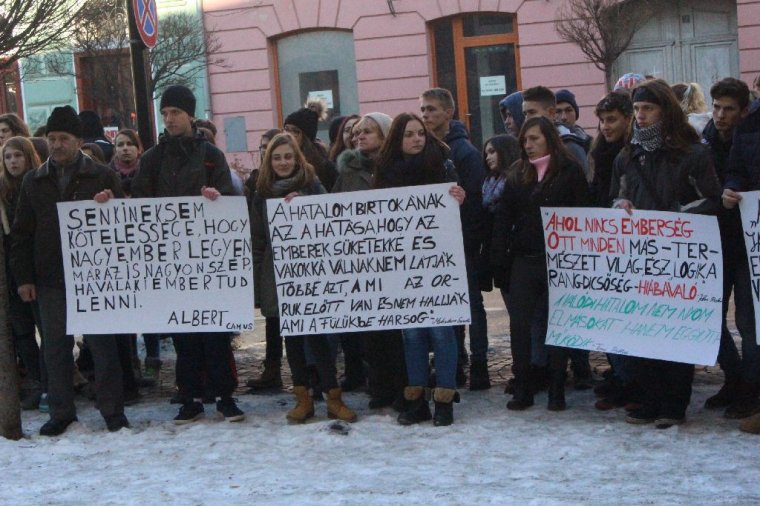 SENKINEKSEM
KÖTELESSÉGE, HOGY
NAGY EMBER LEGYEN
MÁR AZ IS NAGYON SZÉP,
HA VALAKI EMBER TUD
LENNI.
ALBERT CAMUS
A HATALOM BIRTOKÁNAK
AZ A HATÁSA HOGY AZ
EMBEREK SÜKETEKKÉ ÉS
VAKOKKÁ VÁLNAK NEM LÁTJÁK
TÖBBÉ AZT, AMI AZ OR-
RUK ELŐTT VAN ÉS NEM HALLJÁK
AMI A FÜLÜKBE HARSOG"
AHOL NINCS EMBERSÉG
OTT MINDEN MÁS - TER-
MÉSZET VILÁG ÉSZ LOGIKA
RANG DICSŐSÉG - HIÁBAVALÓ
A VALÓDI HATALOM NEM NYOM
EL MÁSOKAT HANEM EGYÜTT
MŰKÖDIK